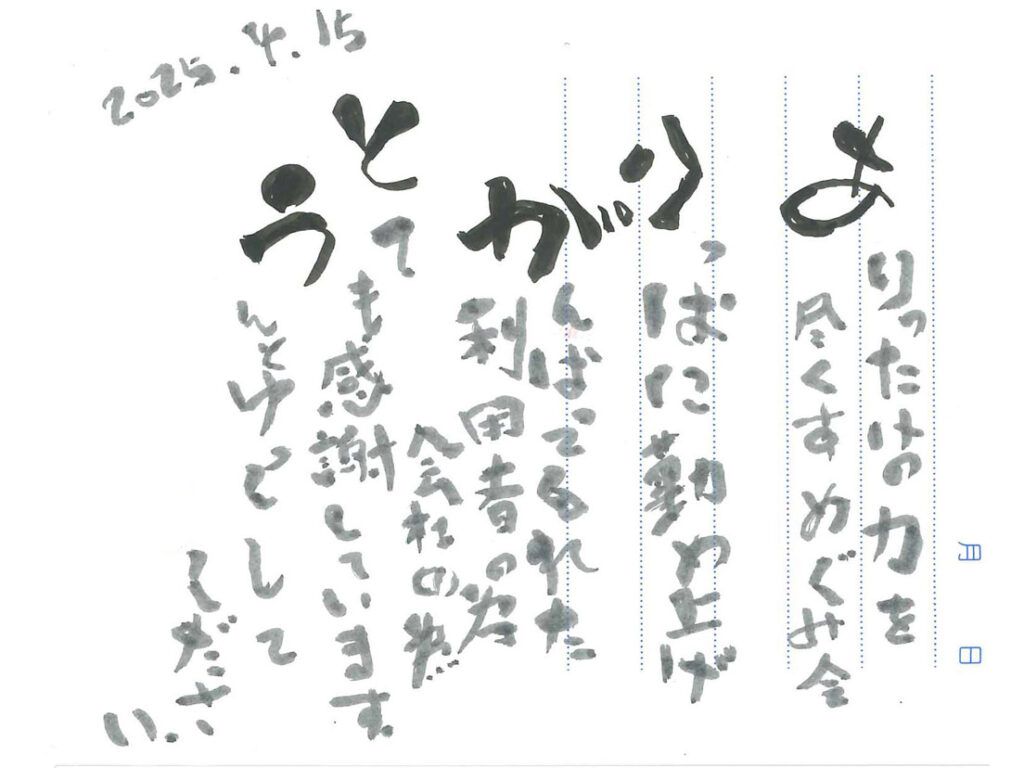 月 日
あ
りったけの力を
尽くす めぐみ会
り
っぱに勤め上げ
が
んばてるれた
利用者の為
会社の為
と
ても感謝しています
う
んとゆ して
ください
2025.4.15